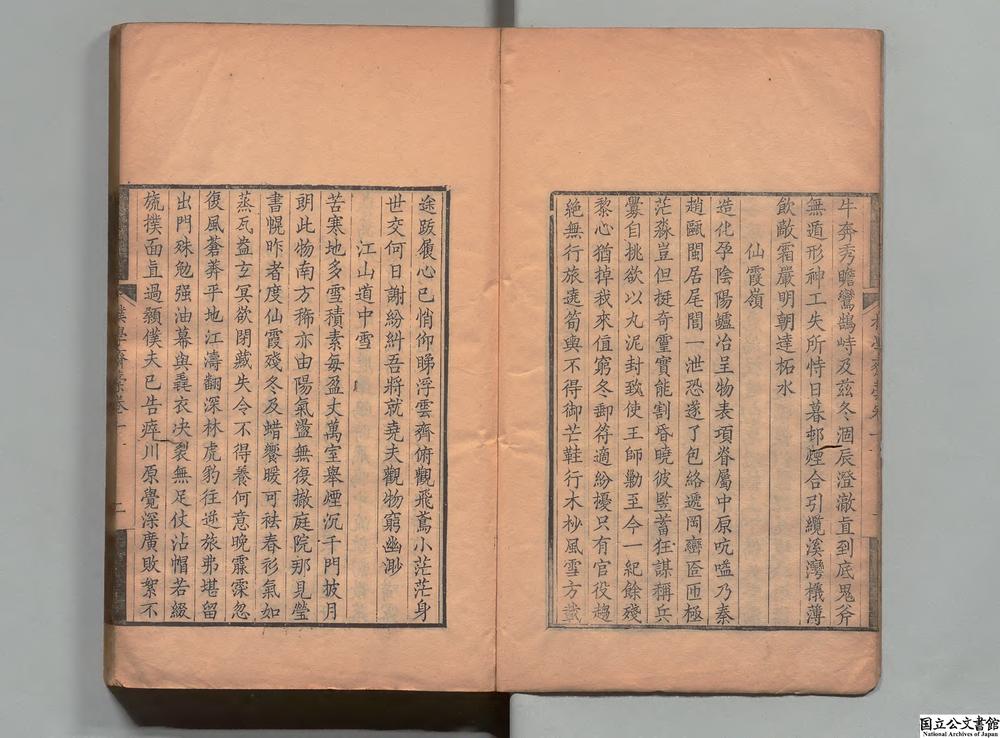 牛奔秀瞻鸞鵠峙及茲冬涸辰澄澈直到底鬼斧
無遁形神工失所恃日暮邨煙合引纜溪灣檥薄
飲敵霜嚴明朝達柘水
仙霞嶺
造化孕陰陽鑪冶呈物表項脊屬中原吭嗌乃秦
趙甌閩居尾閭一泄恐遂了包絡遞岡巒匼匝極
茫淼豈但挺奇靈實能割昏曉彼豎蓄狂謀稱兵
釁自挑欲以丸泥封致使王師勦至今一紀餘殘
黎心猶掉我來值窮冬郵符適紛擾只有官役趨
絶無行旅遶筍輿不得御芒鞋行木杪風雪方載
途跋履心已悄仰睇浮雲齊俯觀飛鳶小茫茫身
世交何日謝紛糾吾將就堯夫觀物窮幽渺
江山道中雪
苦寒地多雪積素每盈丈萬室舉煙沉千門披月
朗此物南方稀亦由陽氣盪無復撤庭院那見瑩
書幌昨者度仙霞殘冬及蜡饗暖可祛春衫氣如
蒸瓦盎玄冥欲閉藏失令不得養何意晚霡霂忽
復風蒼莽平地江濤翻深林虎豹往逆旅弗堪留
出門殊勉强油幕與毳衣决裂無足仗沾帽若綴
旒撲面直過顙僕夫已告瘁川原覺深廣敗絮不
樸學齋稾卷一
国立公文書館
National Archives of Japan